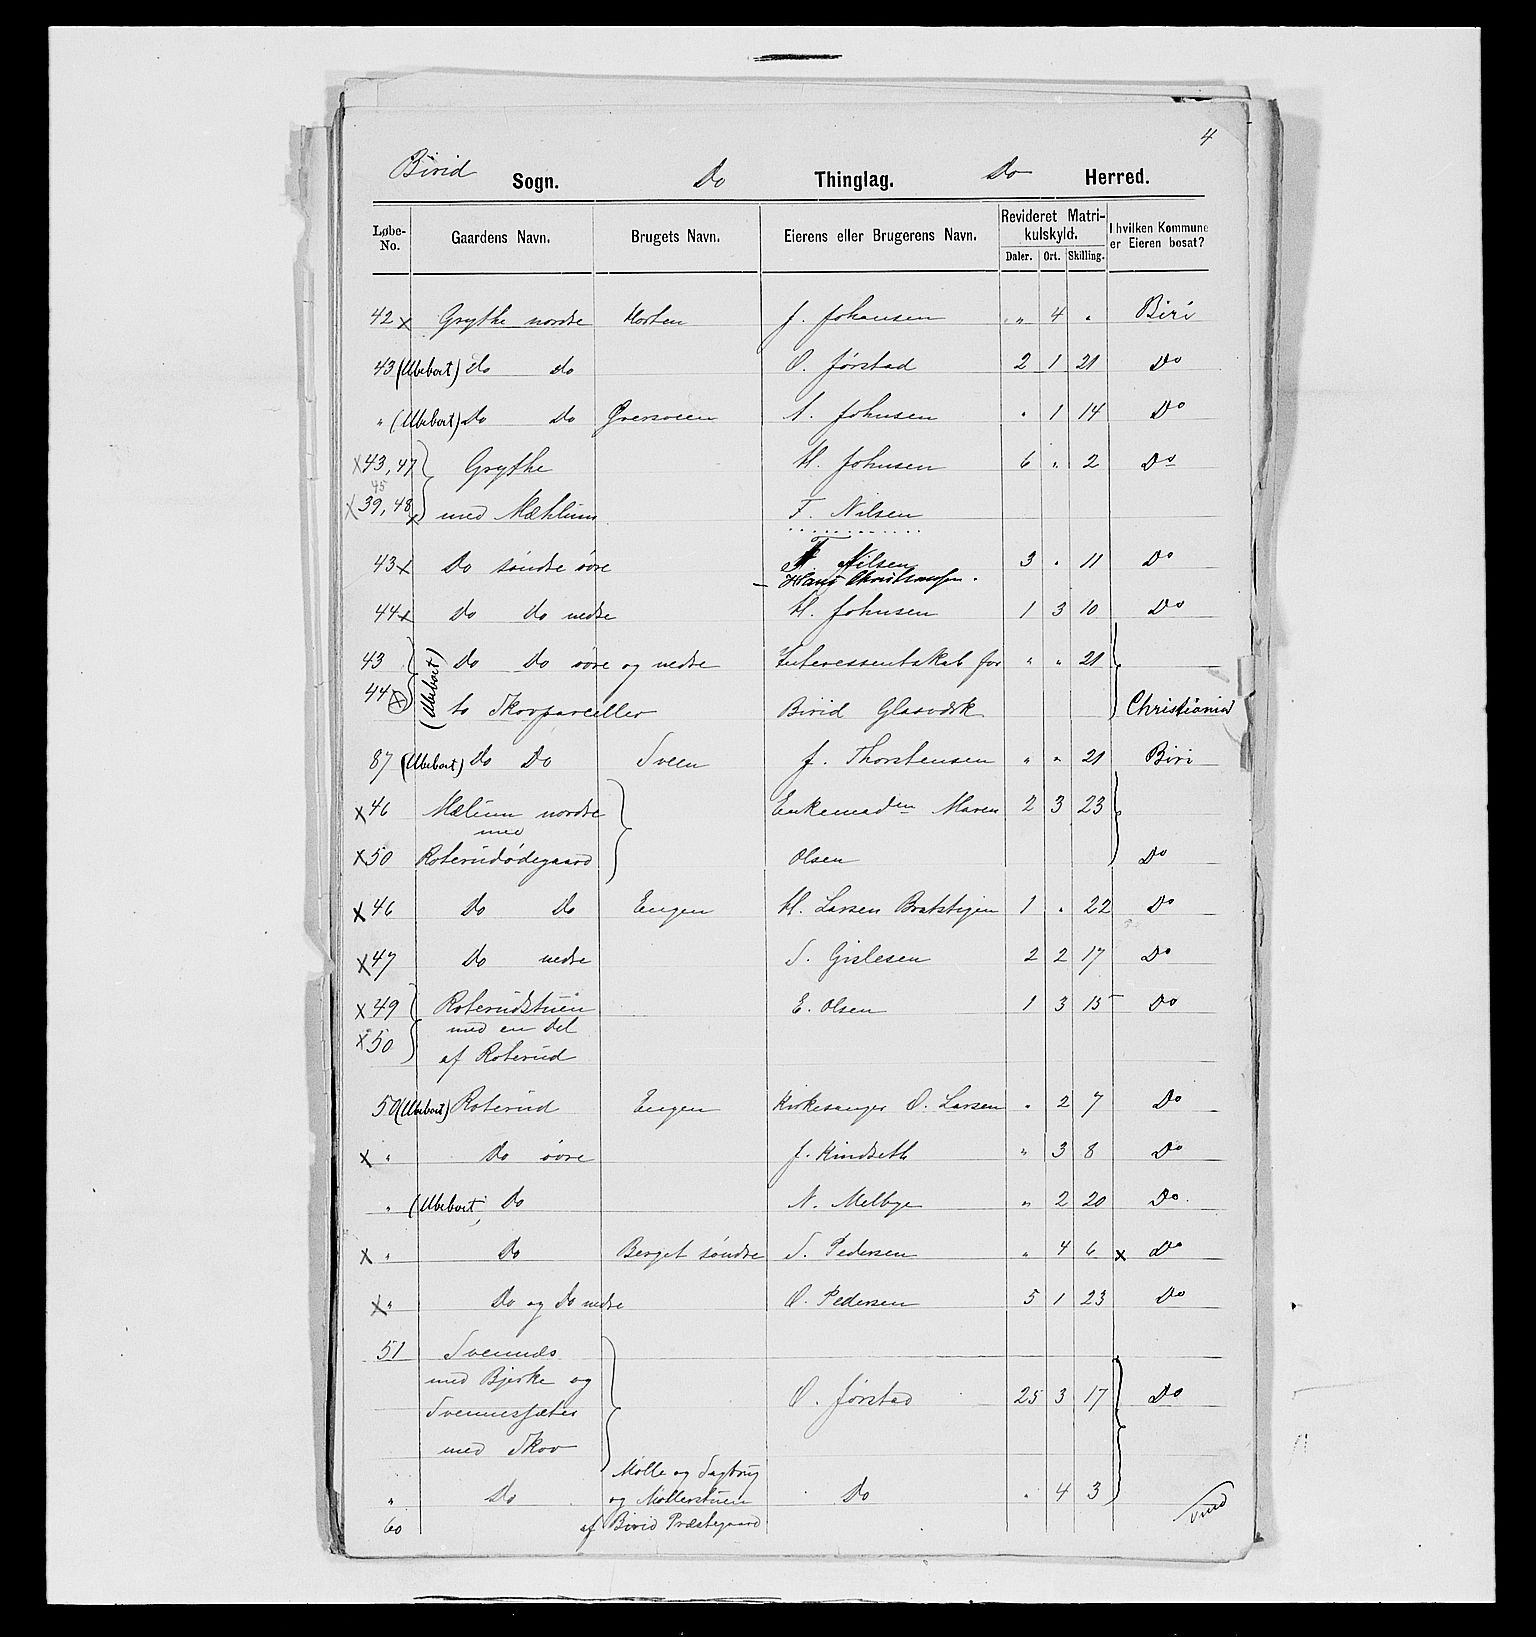 4
Birid Sogn. Do Thinglag. Do Herred.
Løbe-No. Gaardens Navn. Brugets Navn. Eierens eller Brugerens Navn. Revideret Matrikulskyld. Daler. Ort. Skilling. I hvilken Kommune er Eieren bosat?
42 x Grythe nordre Morten J. Johansen " 4 " Biri
43 (Ubeboet) do do O. Jørstad 2 1 21 Do
" (Ubeboet) Do Do A. Johnsen " 1 14 Do
x 43, 47 Grythe H. Johnsen 6 " 2 Do
45
x 39, 48 x med Mæhlum F. Nilsen
43 x Do søndre øvre F. Nilsen 3 " 11 Do
Hans Christiansen.
44 x Do Do nedre H. Johnsen 1 3 10 Do
43 (Ubeboet) Do Do øvre og nedre Interessentskab for " " 21
44 x to Skovparceller Birid Glasværk Christiania
87 (Ubeboet) Do Do Sveen J. Thorstensen " " 21 Biri
x 46 Mælum nordre Enkemadm Maren 2 3 23
med
x 50 Roterudødegaard Olsen Do
x 46 Do Do Engen H. Larsen Bratstigen 1 " 22 Do
x 47 Do nedre S. Gislesen 2 2 17 Do
x 49 Roterudstuen E. Olsen 1 3 15 Do
med en del
x 50 af Roterud
50 (Ubeboet) Roterud Engen Kirkesanger O. Larsen " 2 7 Do
x " Do øvre J. Kindseth " 3 8 Do
" (Ubeboet) Do N. Melbye " 2 20 Do
x " Do Berget søndre S. Pedersen " 4 6 x Do
x " Do og Do nedre O. Pedersen 5 1 23 Do
51 Svennæs
med Bjerke og O. Jørstad 25 3 17 Do
Svennessæter
med Skov
Mølle og Sagbrug
" Do og Møllerstuen Do " 4 3
60 af Birid Præstegaard
Vend